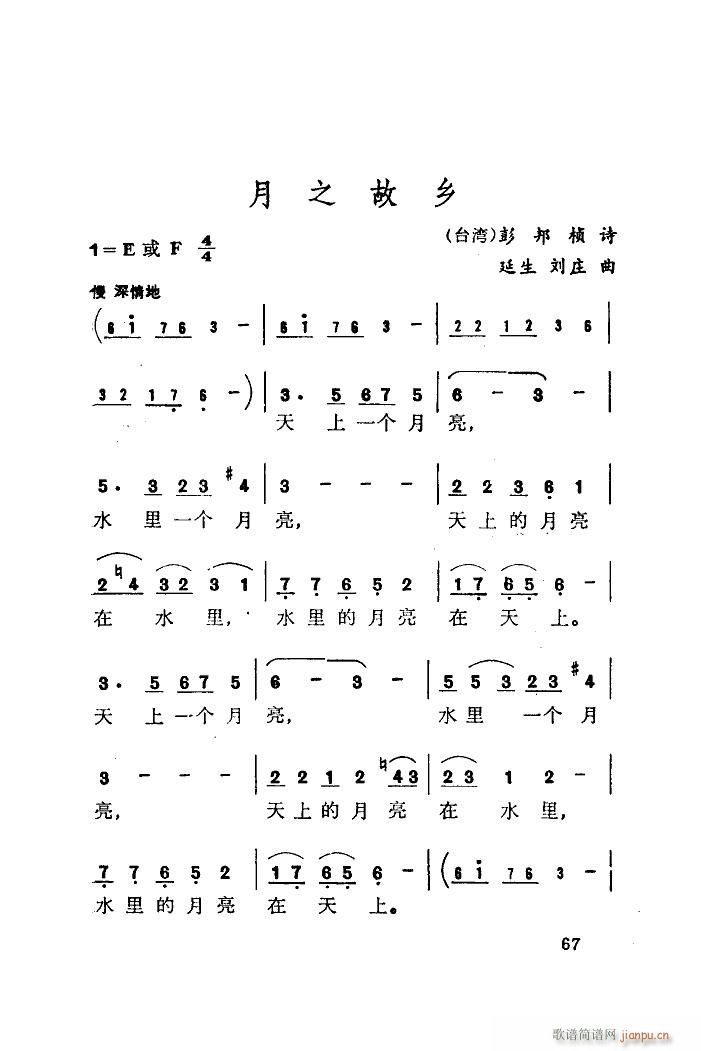 月之故乡
1=E或F 4/4
(台湾)彭邦桢诗
延生 刘庄 曲
慢 深情地
(6 i 7 6 3 - | 6 i 7 6 3 - | 2 2 1 2 3 6 |
3 2 1 7 6 -) | 3. 5 6 7 5 | 6 - 3 - |
天上一个月亮,
5. 3 2 3 #4 | 3 - - - | 2 2 3 6 1 |
水里一个月亮, 天上的月亮
2 ♮4 3 2 3 1 | 7 7 6 5 2 | 1 7 6 5 6 - |
在水里, 水里的月亮在天上。
3. 5 6 7 5 | 6 - 3 - | 5 5 3 2 3 #4 |
天上一个月亮, 水里一个月
3 - - - | 2 2 1 2 ♮4 3 | 2 3 1 2 - |
亮, 天上的月亮在水里,
7 7 6 5 2 | 1 7 6 5 6 - | (6 i 7 6 3 - |
水里的月亮在天上。
67
歌谱简谱网
jianpu.cn